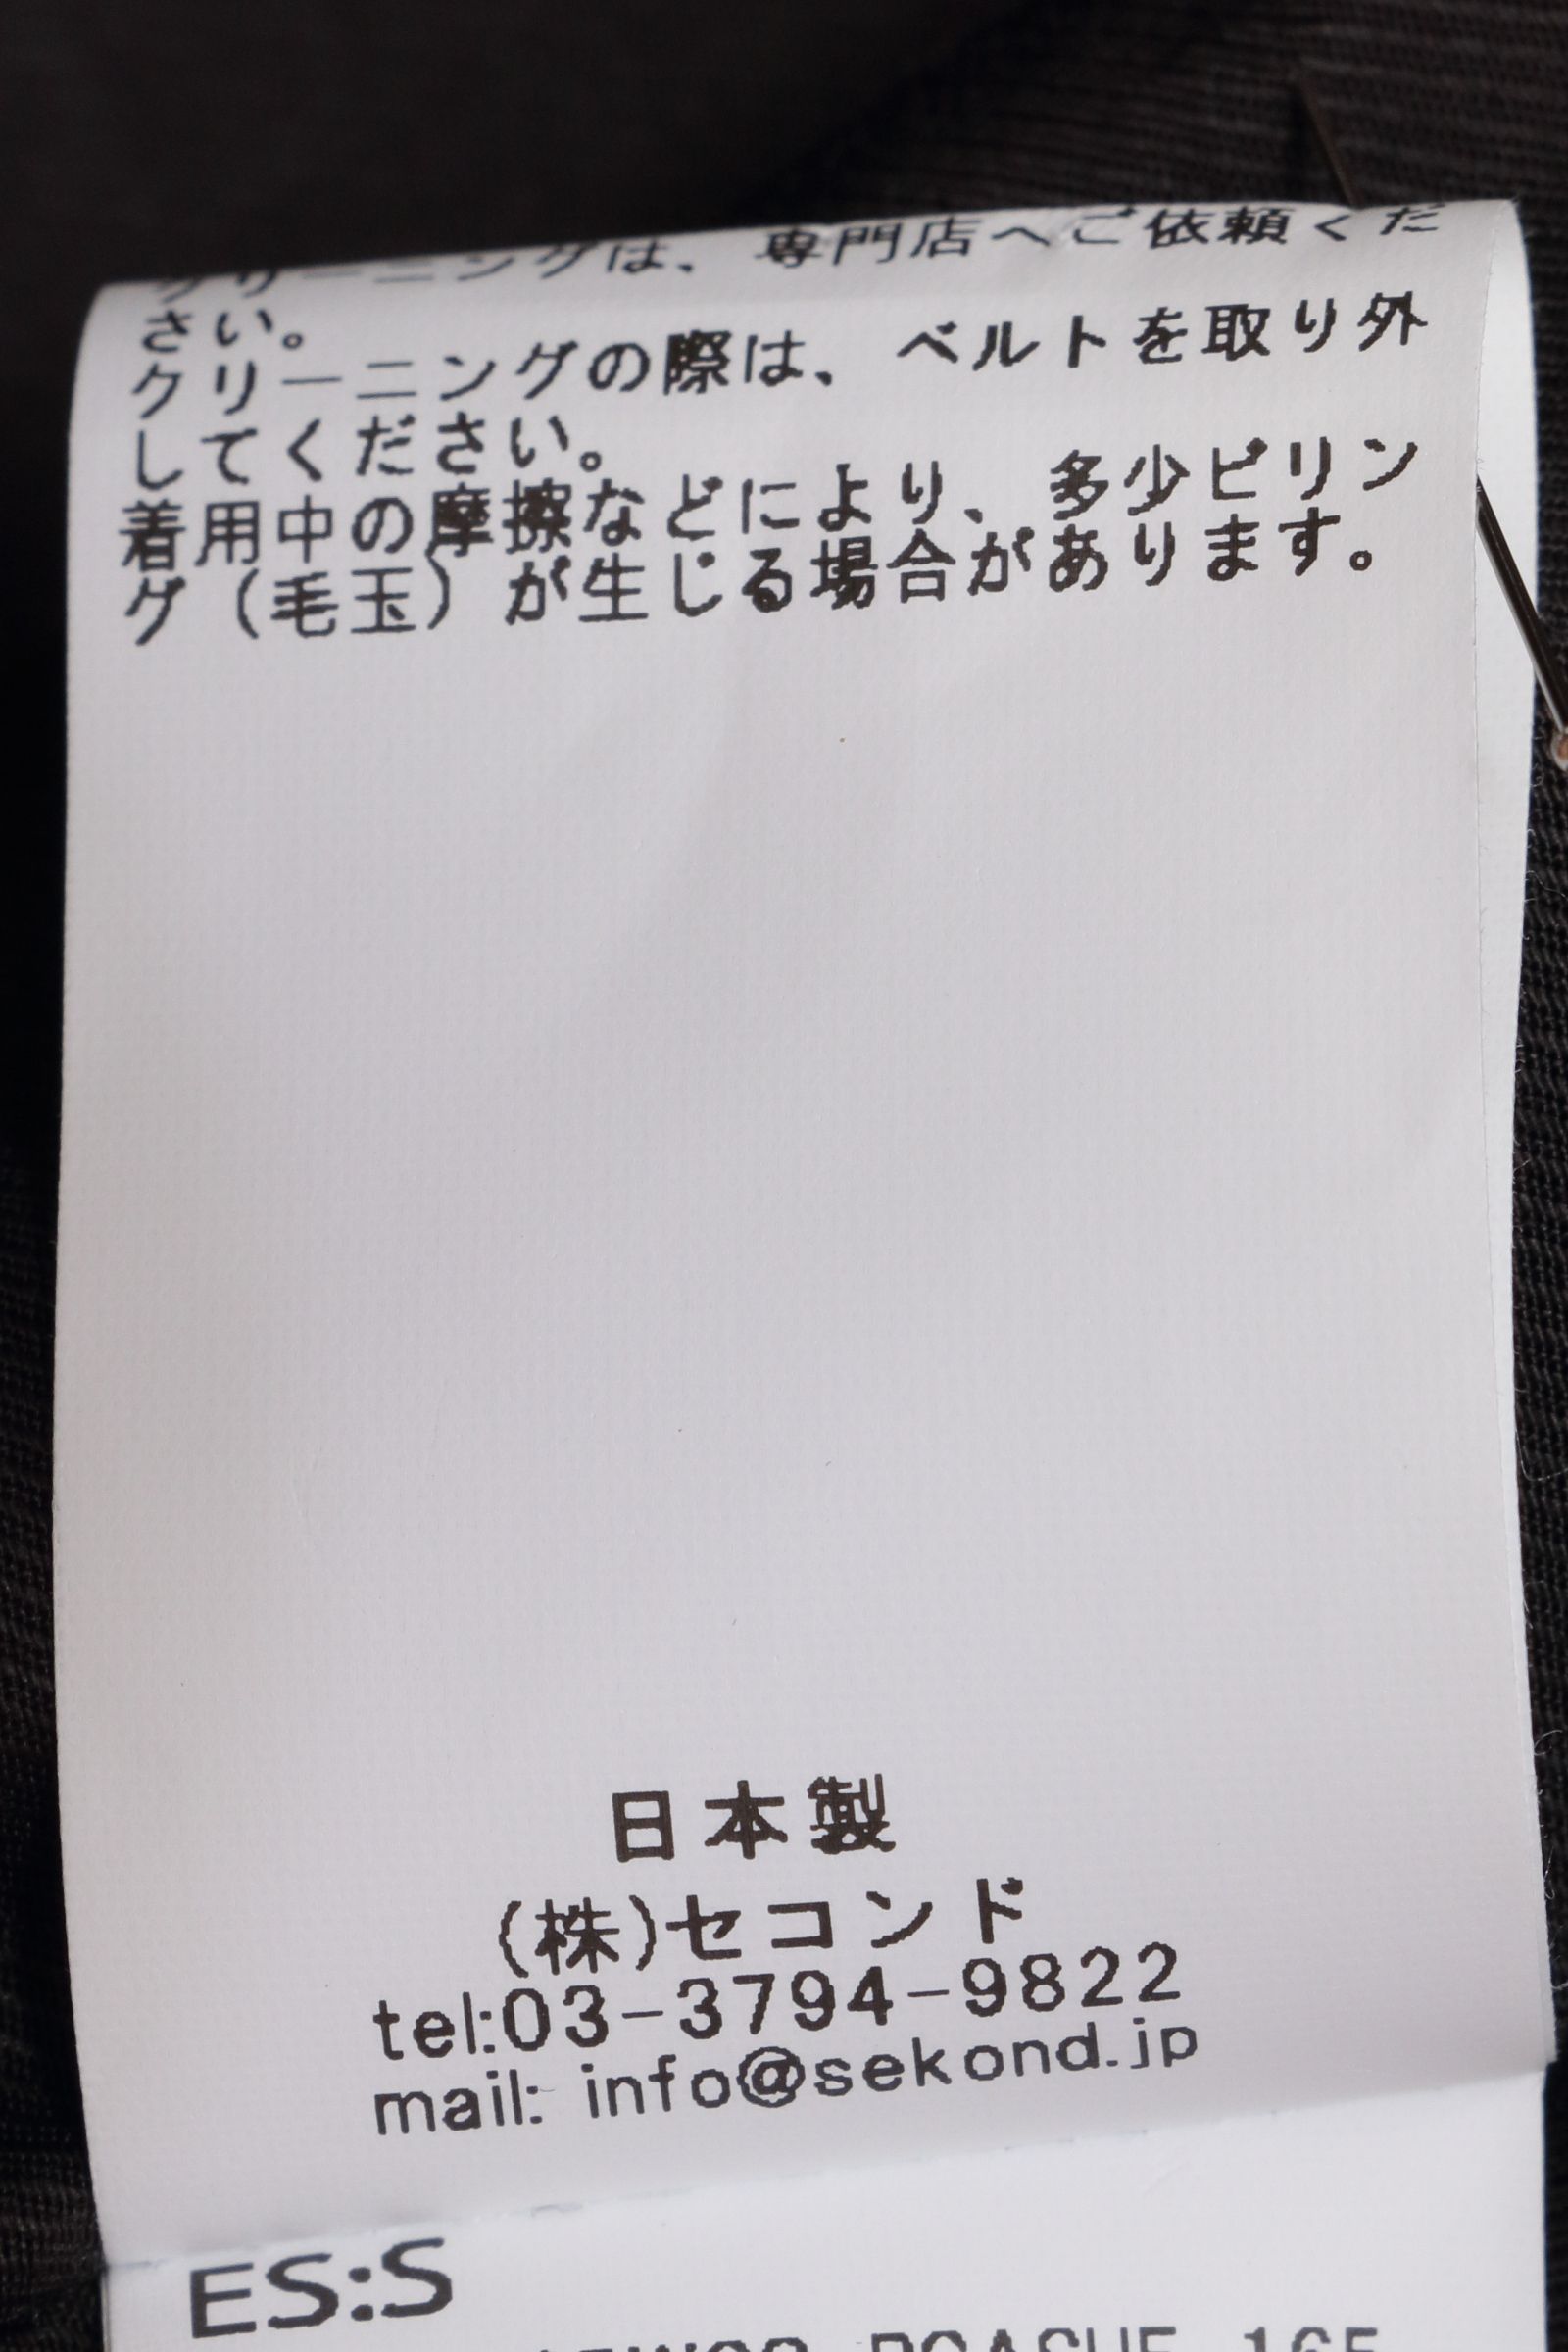 クリーニングは、専門店へご依頼くだ
さい。
クリーニングの際は、ベルトを取り外
してください。
着用中の摩擦などにより、多少ピリン
グ（毛玉）が生じる場合があります。
日本製
(株)セコンド
tel:03-3794-9822
mail: info@sekond.jp
ES:S